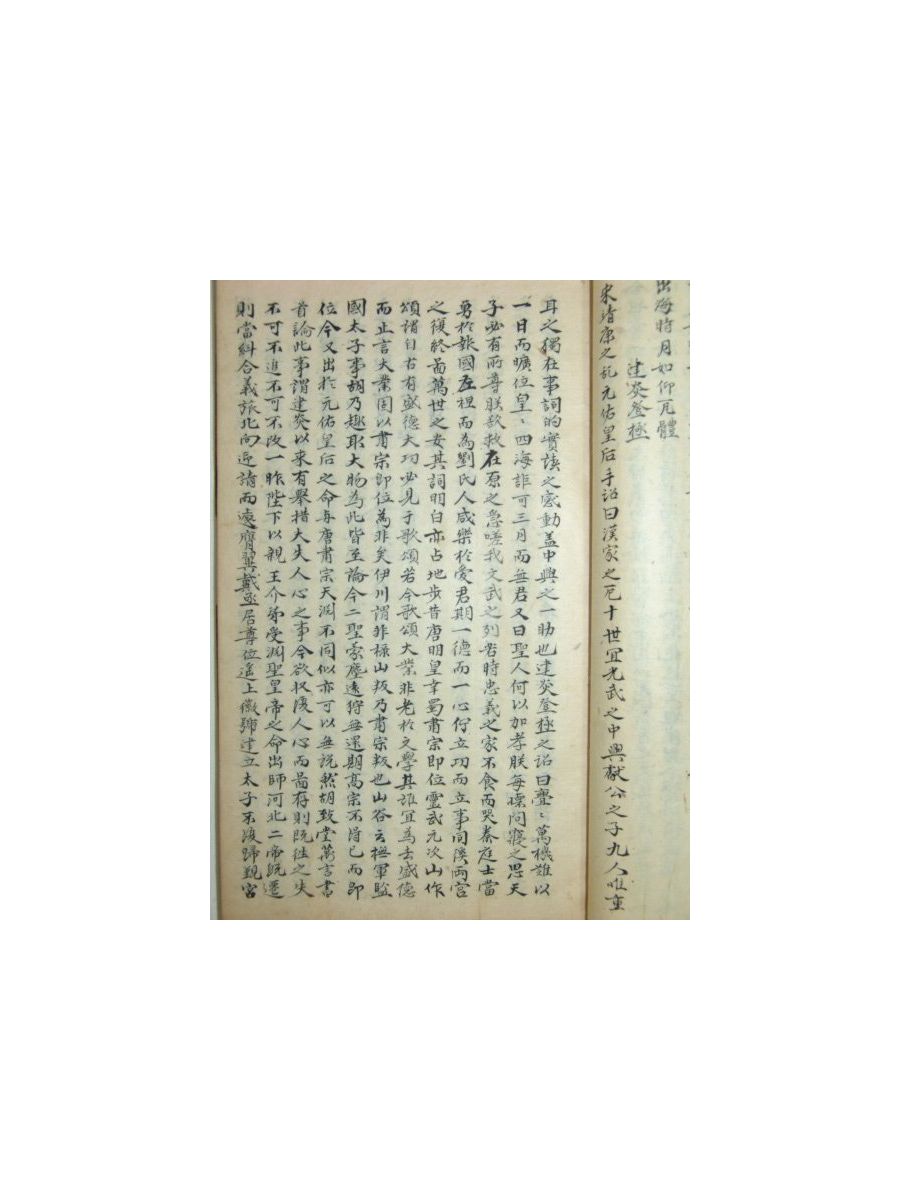 出海時月如仰瓦體
建炎登極
宋靖康之乱元佑皇后手詔曰漢家之厄十世宜光武之中興献公之子九人唯重
耳之獨在事詞的實讀之感動盖中興之一助也建炎登極之詔曰亹〻萬機難以
一日而曠位皇〻四海詎可三月而無君又曰聖人何以加孝朕每懷問寢之思天
子必有所尊朕欲救在原之急嗟我文武之列若時忠義之家不食而哭秦庭士當
勇於報國左袒而為劉氏人咸樂於愛君期一德而一心佇立功而立事同徯兩宮
之復終啚萬世之安其詞明白亦占地步昔唐明皇幸蜀肅宗即位靈武元次山作
頌謂自古有盛德大功必見于歌頌若今歌頌大業非老於文學其誰宜為去盛德
而止言大業固以肅宗即位為非矣伊川謂非祿山叛乃肅宗叛也山谷云撫軍監
國太子事胡乃趣取大物為此皆至論今二聖蒙塵遠狩無還期高宗不得已而即
位今又出於元佑皇后之命與唐肅宗天渊不同似亦可以無説然胡致堂萬言書
首論此事謂建炎以來有舉措大失人心之事今欲收復人心而啚存則既徃之失
不可不追不可不改一昨陛下以親王介弟受渊聖皇帝之命出師河北二帝既遷
則當糾合義旅北向迎請而遽膺翼戴亟居尊位遙上徽號建立太子不復歸覲宮